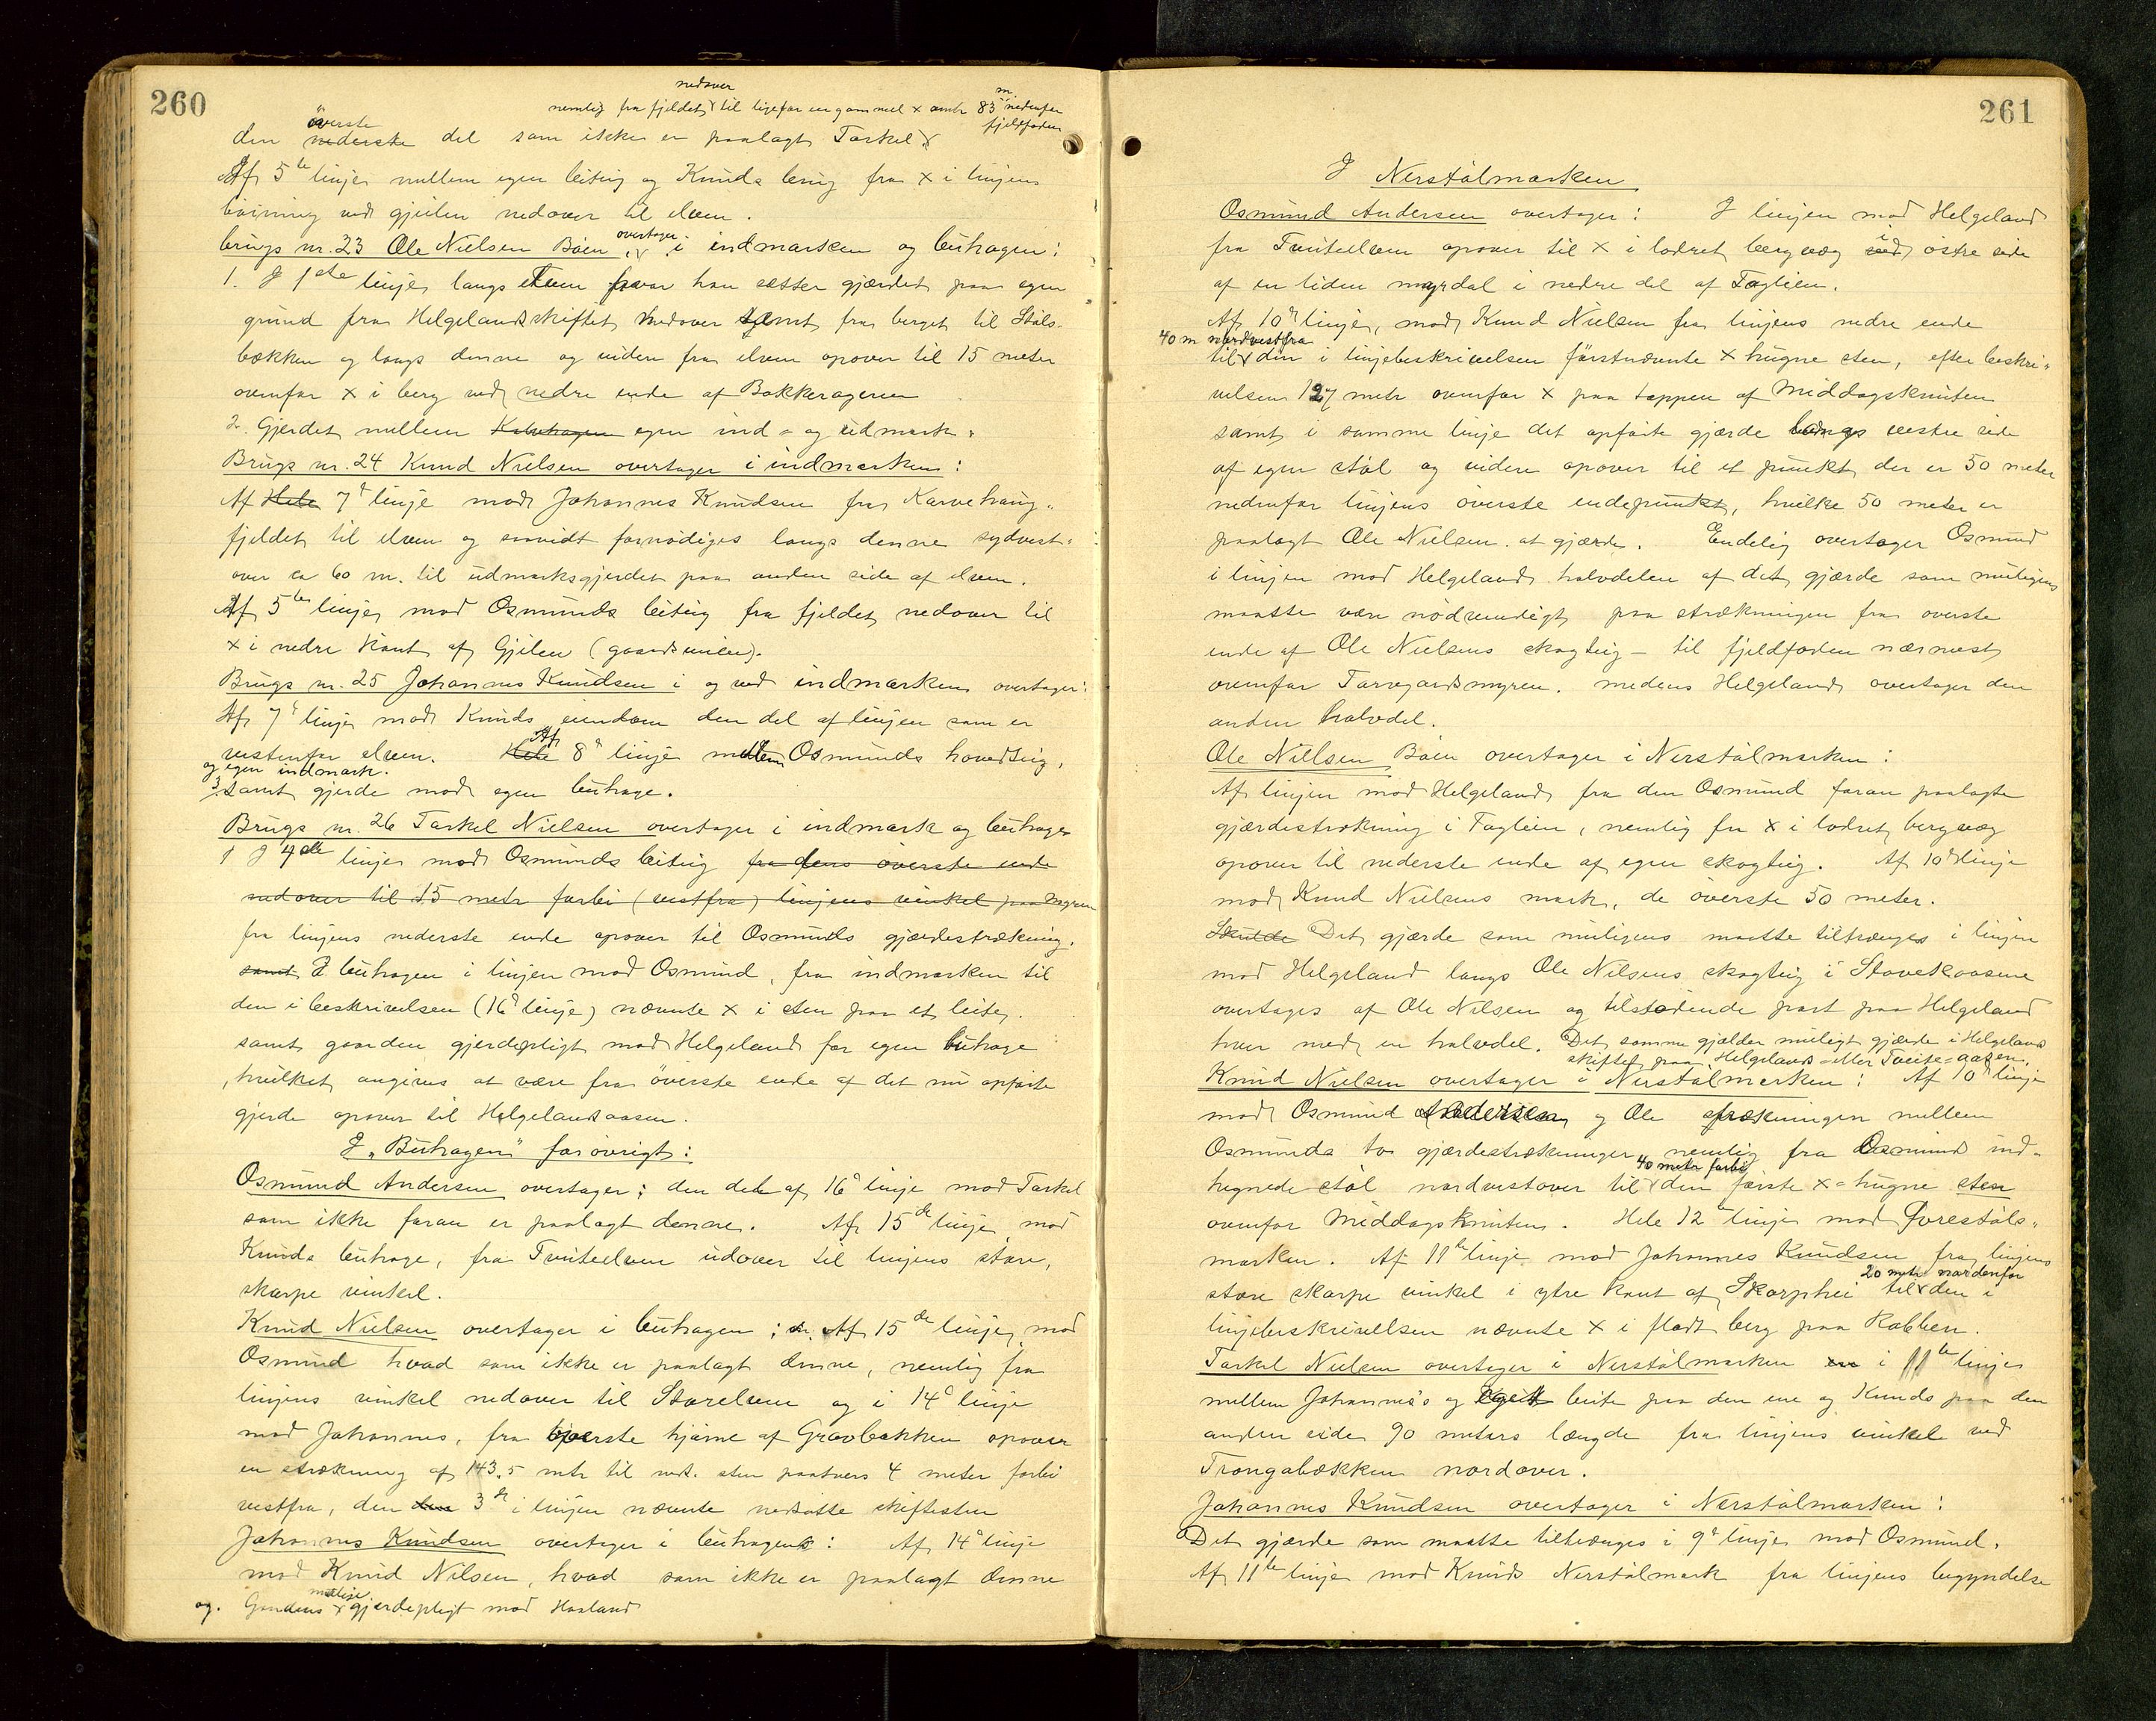 260
nedover
nemlig fra fjeldet til ligefor en gammel x omtr 83 m nedenfor
fjeldfoden
øverste
den nederste del som ikke er paalagt Torkel
Af 5te linje mellem egen beiteig og Knuds teig fra x i linjens
bøining ved gjeilen nedover til elven.
brugs nr. 23 Ole Nielsen Bøen overtager i indmarken og buhagen:
1. I 1ste linje langs Elven hvor han sætter gjærdet paa egen
grund fra Helgelandskiftet nedover samt fra berget til Støls-
bækken og langs denne og videre fra elven opover til 15 meter
ovenfor x i berg ved nedre ende af Bakkerageren
2. Gjerdet mellem Kalvehagen egen ind- og udmark.
Brugs nr. 24 Knud Nielsen overtager i indmarken:
Af Hele 7d linje mod Johannes Knudsen fra Karvehaug-
fjeldet til elven og saavidt fornødiges langs denne sydvest-
over ca 60 m. til udmarksgjerdet paa anden side af elven.
Af 5te linje mod Osmunds beiteig fra fjeldet nedover til
x i nedre kant af Gjeilen (gaardsveien).
Brugs nr. 25 Johannes Knudsen i og ved indmarken overtager:
Af 7d linje mod Knuds eiendom den del af linjen som er
vestenfor elven. Hele Af 8d linje mellem Osmunds hovedteig,
og egen indmark.
3. samt gjerde mod egen buhage.
Brugs nr. 26 Torkel Nielsen overtager i indmark og buhagen
1 I 4de linje mod Osmunds beiteig fra dens øverste ende
nedover til 15 metr forbi (vestfra) linjens vinkel paa Myren
fra linjens nederste ende opover til Osmunds gjærdestrækning.
samt I buhagen i linjen mod Osmund, fra indmarken til
den i beskrivelsen (16d linje) nævnte x i sten paa et leite,
samt gaarden gjerdepligt mod Helgeland for egen buhage
, hvilket angives at være fra øverste ende af det nu opførte
gjerde opover til Helgelandsaasen.
I „Buhagen" forøvrigt:
Osmund Andersen overtager: den del af 16d linje mod Torkel
som ikke foran er paalagt denne. Af 15de linje mod
Knuds buhage, fra Tveiteelven udover til linjens store,
skarpe vinkel.
Knud Nielsen overtager i buhagen: Af 15de linje, mod
Osmund hvad som ikke er paalagt denne, nemlig fra
linjens vinkel nedover til Storelven og i 14d linje
mod Johannes, fra øverste hjørne af Gravbakken opover
en strækning af 143,5 mtr til nedsat sten paatvers 4 meter forbi
vestfra, den 3de i linjen nævnte nedsatte skiftesten
Johannes Knudsen overtager i buhagen: Af 14d linje
mod Knud Nilsen, hvad som ikke er paalagt denne
og. Gaardens mulige gjerdepligt mod Haaland
261
I Nerstølmarken
Osmund Andersen overtager: I linjen mod Helgeland
fra Tveiteelven opover til x i lodret bergvæg i østre side
af en liden myrdal i nedre del af Faglien.
Af 10d linje, mod Knud Nielsen fra linjens nedre ende
40 m nordvestfra
til den i linjebeskrivelsen førstnævnte x hugne sten, efter beskri-
velsen 127 metr ovenfor x paa toppen af Middagsknuten
samt i samme linje det opførte gjærde langs vestre side
af egen støl og videre opover til et punkt, der er 50 meter
nedenfor linjens øverste endepunkt, hvilke 50 meter er
paalagt Ole Nielsen at gjærde. Endelig overtager Osmund
i linjen mod Helgeland halvdelen af det gjærde som muligens
maatte være nødvendigt paa strækningen fra øverste
ende af Ole Nielsens skogteig – til fjeldfoden nærmest
ovenfor Torvgardsmyren. medens Helgeland overtager den
anden halvdel.
Ole Nielsen Bøen overtager i Nerstølmarken:
Af linjen mod Helgeland fra den Osmund foran paalagte
gjærdestrækning i Faglien, nemlig fra x i lodret bergvæg
opover til nederste ende af egen skogteig. Af 10d linje
mod Knud Nielsens mark, de øverste 50 meter.
Skulde Det gjærde som muligens maatte tiltrænges i linjen
mod Helgeland langs Ole Nilsens skogteig i Stovekaasene
overtages af Ole Nilsen og tilstødende part paa Helgeland
hver med en halvdel. Det samme gjælder muligt gjærde i Helgelands
skiftet paa Helgelands- eller Tveite-aasen.
Knud Nielsen overtager i Nerstølmarken: Af 10d linje
mod Osmund Andersen og Ole strækningen mellem
Osmunds to gjærdestrækninger, nemlig fra Osmund ind-
40 metr forbi
hegnede støl nordvestover til den første x-hugne sten
ovenfor Middagsknuten. Hele 12te linje mod Øvrestøls-
marken. Af 11te linje mod Johannes Knudsen fra linjens
20 metr nordenfor
store skarpe vinkel i ytre kant af Skorphei til den i
linjebeskrivelsen nævnte x i fladt berg paa Rabben.
Torkel Nielsen overtager i Nerstølmarken i 11te linje
mellem Johannes's og eget beite paa den ene og Knuds paa den
anden side 90 meters længde fra linjens vinkel ved
Trongabækken nordover.
Johannes Knudsen overtager i Nerstølmarken:
Det gjærde som maatte tiltrænges i 9d linje mod Osmund.
Af 11te linje mod Knuds Nerstølmark fra linjens begyndelse